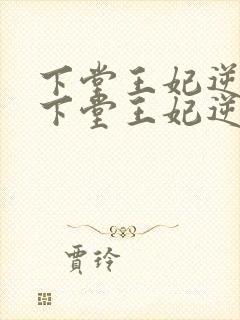 下堂王妃逆
下堂王妃逆
贾玲